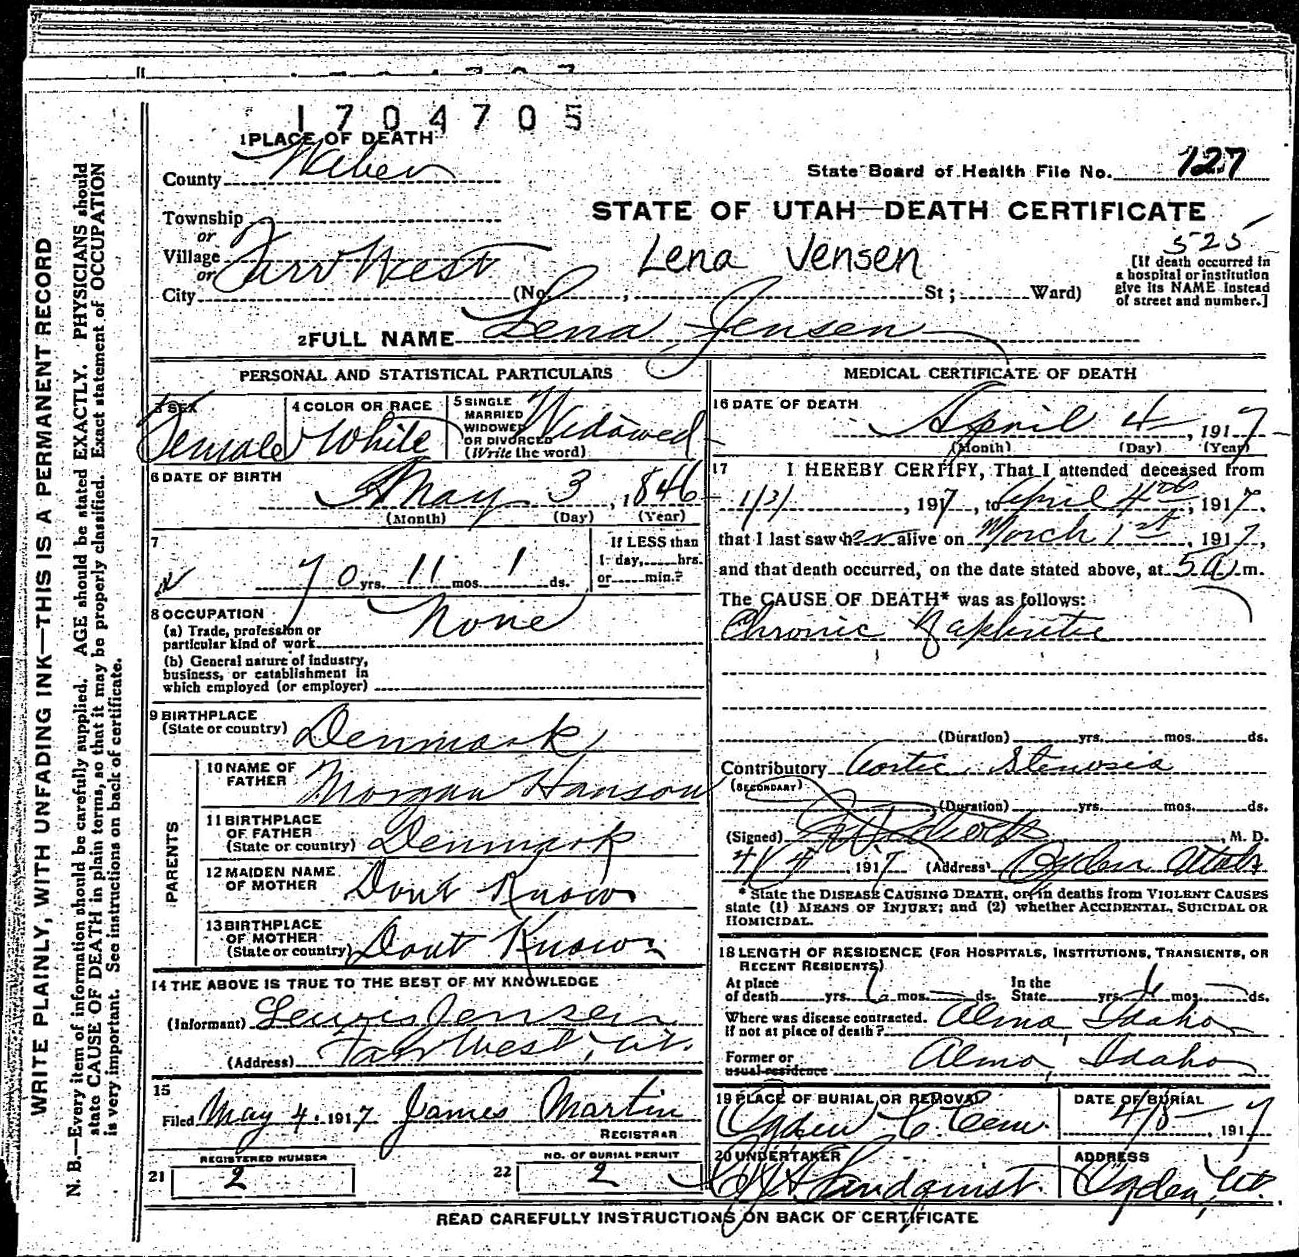 1704705
1 PLACE OF DEATH
County Weber
State Board of Health File No. 127
Township
or
Village Farr West
or
City (No. , St; Ward)
STATE OF UTAH—DEATH CERTIFICATE
525
Lena Jensen
[If death occurred in
a hospital or institution
give its NAME instead
of street and number.]
2 FULL NAME Lena Jensen
PERSONAL AND STATISTICAL PARTICULARS
3 SEX Female
4 COLOR OR RACE White
5 SINGLE
MARRIED
WIDOWED
OR DIVORCED
(Write the word)
Widowed
6 DATE OF BIRTH
May 3, 1846
(Month) (Day) (Year)
7
70 yrs. 11 mos. 1 ds.
If LESS than
1 day, hrs.
or min.?
8 OCCUPATION
(a) Trade, profession or
particular kind of work None
(b) General nature of industry,
business, or establishment in
which employed (or employer)
9 BIRTHPLACE
(State or country) Denmark
PARENTS
10 NAME OF
FATHER Morgan Hanson
11 BIRTHPLACE
OF FATHER
(State or country) Denmark
12 MAIDEN NAME
OF MOTHER Dont Know
13 BIRTHPLACE
OF MOTHER
(State or country) Dont Know
14 THE ABOVE IS TRUE TO THE BEST OF MY KNOWLEDGE
(Informant) Lewis Jensen
(Address) Farr West, Ut.
15
Filed May 4, 1917 James Martin
REGISTRAR
21 REGISTERED NUMBER 2
22 NO. OF BURIAL PERMIT 2
MEDICAL CERTIFICATE OF DEATH
16 DATE OF DEATH
April 4, 1917
(Month) (Day) (Year)
17 I HEREBY CERTIFY, That I attended deceased from
, 1917, to April 4th, 1917,
that I last saw her alive on March 1st, 1917,
and that death occurred, on the date stated above, at 5 a m.
The CAUSE OF DEATH* was as follows:
Chronic
(Duration) yrs. mos. ds.
Contributory Aortic Stenosis
(SECONDARY)
(Duration) yrs. mos. ds.
(Signed) , M. D.
4/4, 1917 (Address) Ogden Utah
* State the DISEASE CAUSING DEATH, or, in deaths from VIOLENT CAUSES
state (1) MEANS OF INJURY; and (2) whether ACCIDENTAL, SUICIDAL OR
HOMICIDAL.
18 LENGTH OF RESIDENCE (FOR HOSPITALS, INSTITUTIONS, TRANSIENTS, OR
RECENT RESIDENTS)
At place
of death yrs. mos. ds.
In the
State yrs. mos. ds.
Where was disease contracted.
if not at place of death? Almo, Idaho
Former or
usual residence Almo, Idaho
19 PLACE OF BURIAL OR REMOVAL
Ogden C. Cem.
DATE OF BURIAL
4/8, 1917
20 UNDERTAKER
Lindquist.
ADDRESS
Ogden, Ut.
READ CAREFULLY INSTRUCTIONS ON BACK OF CERTIFICATE
WRITE PLAINLY, WITH UNFADING INK—THIS IS A PERMANENT RECORD
N. B.—Every item of information should be carefully supplied. AGE should be stated EXACTLY. PHYSICIANS should
state CAUSE OF DEATH in plain terms, so that it may be properly classified. Exact statement of OCCUPATION
is very important. See instructions on back of certificate.